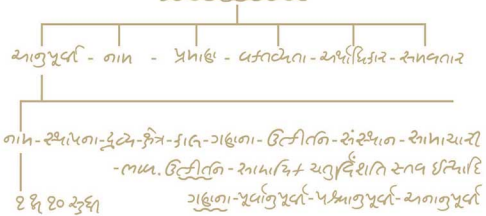 આનુપૂર્વી - નામ - પ્રમાણ - વક્તવ્યતા - અર્થાધિકાર - સમવતાર
નામ-સ્થાપના-દ્રવ્ય-ક્ષેત્ર-કાલ-ગણના-ઉત્કીર્તન-સંસ્થાન-સામાચારી
-ભાવ. ઉત્કીર્તન-સામાયિક ચતુર્વિંશતિ સ્તવ ઈત્યાદિ
૧ થી ૧૦ સુધી ગણના-પૂર્વાનુપૂર્વી-પશ્ચાનુપૂર્વી-અનાનુપૂર્વી